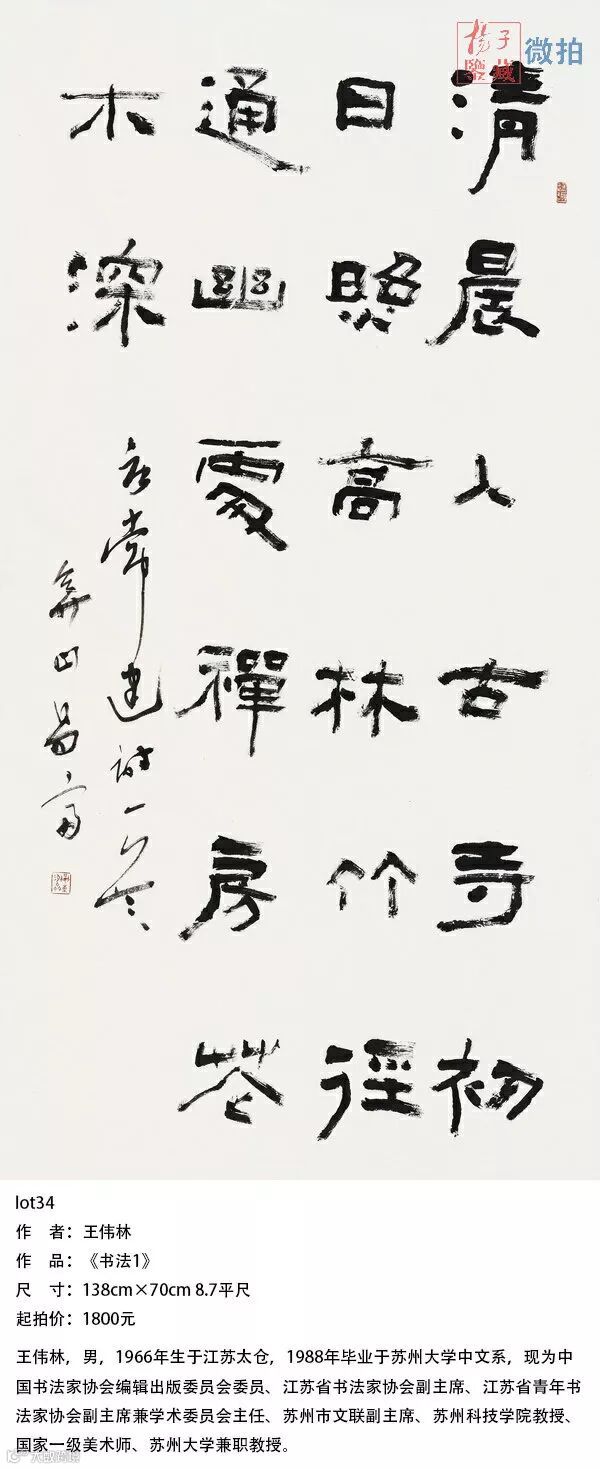 楊子
鑒藏
微拍
清晨入古寺初
日照高林竹徑
通幽處禪房花
木深
常建詩一首
弇山
lot34
作 者：王伟林
作 品：《书法1》
尺 寸：138cm×70cm 8.7平尺
起拍价：1800元
王伟林，男，1966年生于江苏太仓，1988年毕业于苏州大学中文系，现为中
国书法家协会编辑出版委员会委员、江苏省书法家协会副主席、江苏省青年书
法家协会副主席兼学术委员会主任、苏州市文联副主席、苏州科技学院教授、
国家一级美术师、苏州大学兼职教授。
大数跨境